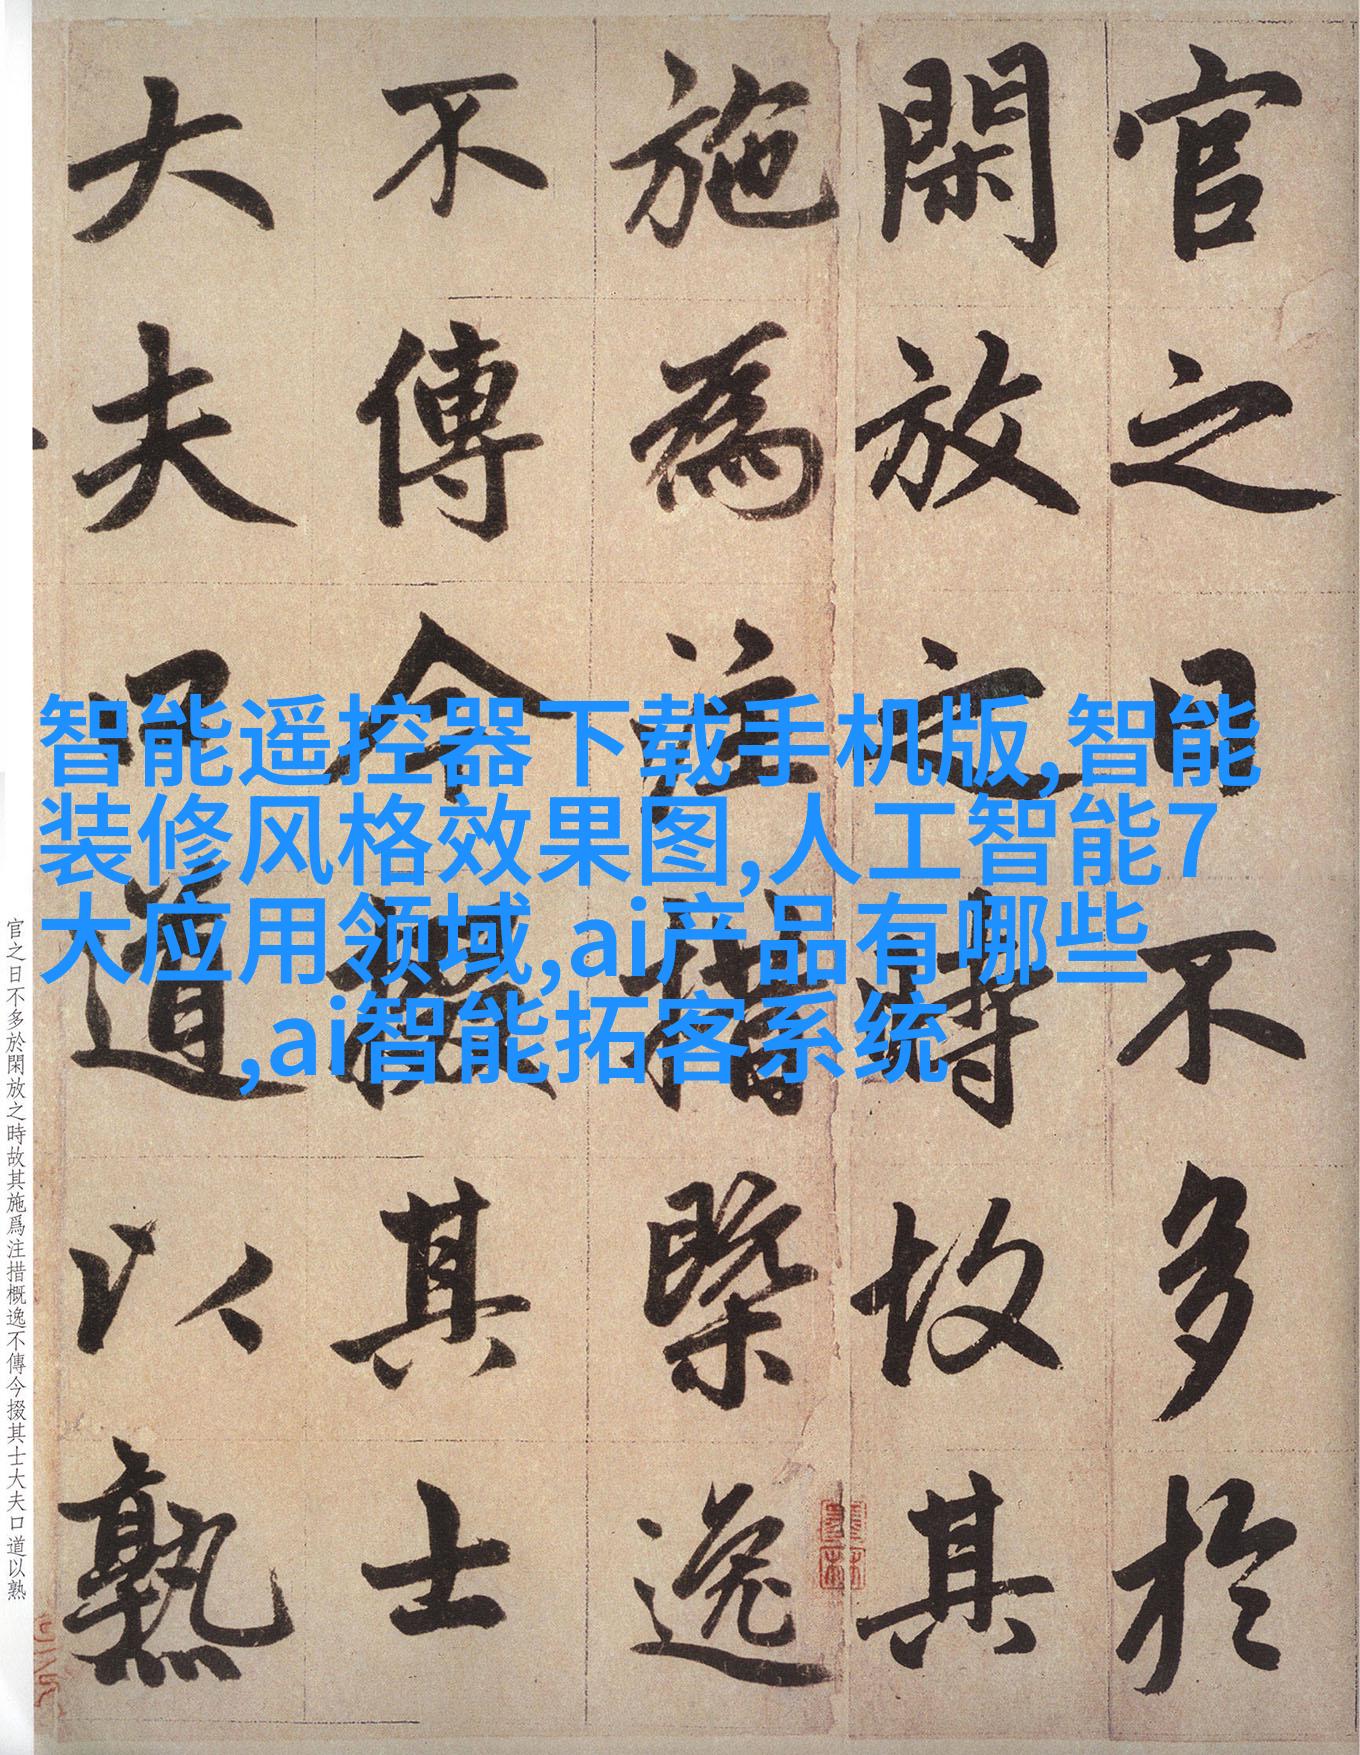 官之日不多於
閑放之時故其
施為注措槩逸
不傳今掇其士
大夫口道以熟
智能遥控器下载手机版,智能
装修风格效果图,人工智能7
大应用领域,ai产品有哪些
,ai智能拓客系统
官之日不多於閑放之時故其施爲注措概逸不傳今掇其士大夫口道以熟